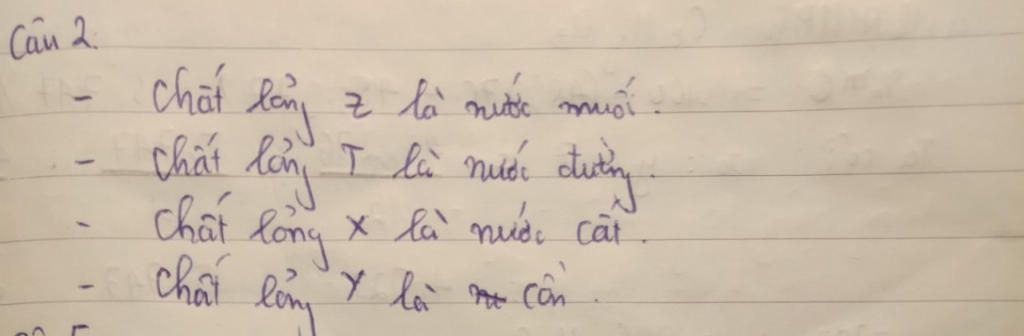 Câu 2.
- Chất lỏng Z là nước muối.
- Chất lỏng T là nước đường.
- Chất lỏng X là nước cất.
- Chất lỏng Y là cồn.